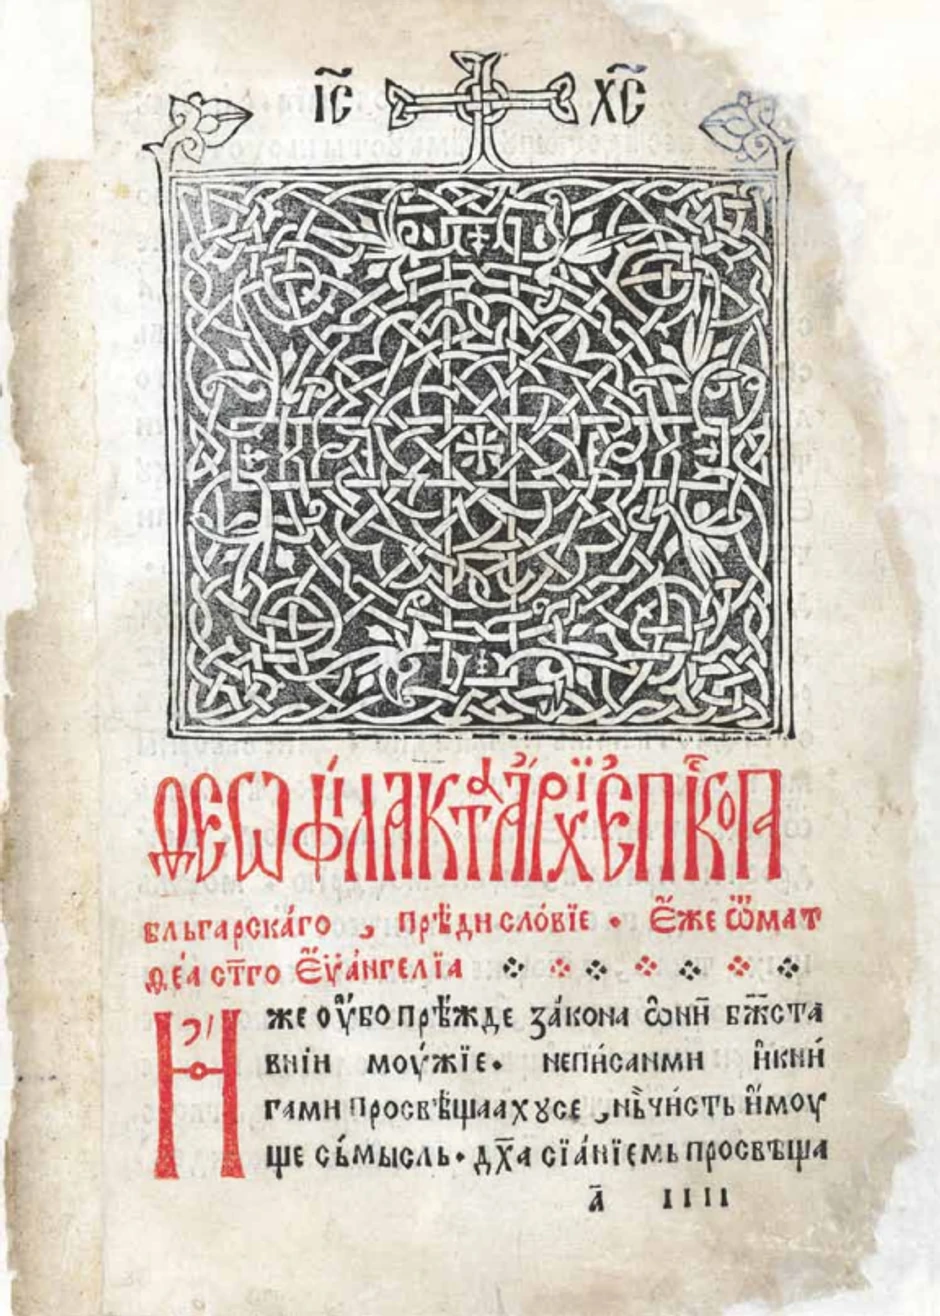 І҃С Х҃С
ѲЕѠФИЛАКТА АРХЇЕПⷭ҇КОПА
бльгарскáго , прѣ́дисло́вїе · Е҆́же ѿ мат
ѳе́а ст҃го Еѵ҆а́нгелїа
И҆́же ѹ҆́бо прѣ́жде за́кона ѻ҆ни҆ бж҃ста
внїи моу́жїе· непи́санми и҆кни́
гами просвѣ́щаахꙋсе , нь̀чи́сть и҆́моу
ще сь́мысль· дх҃а сїа́нїемь просвѣ́ща
а҃ ІІІІ